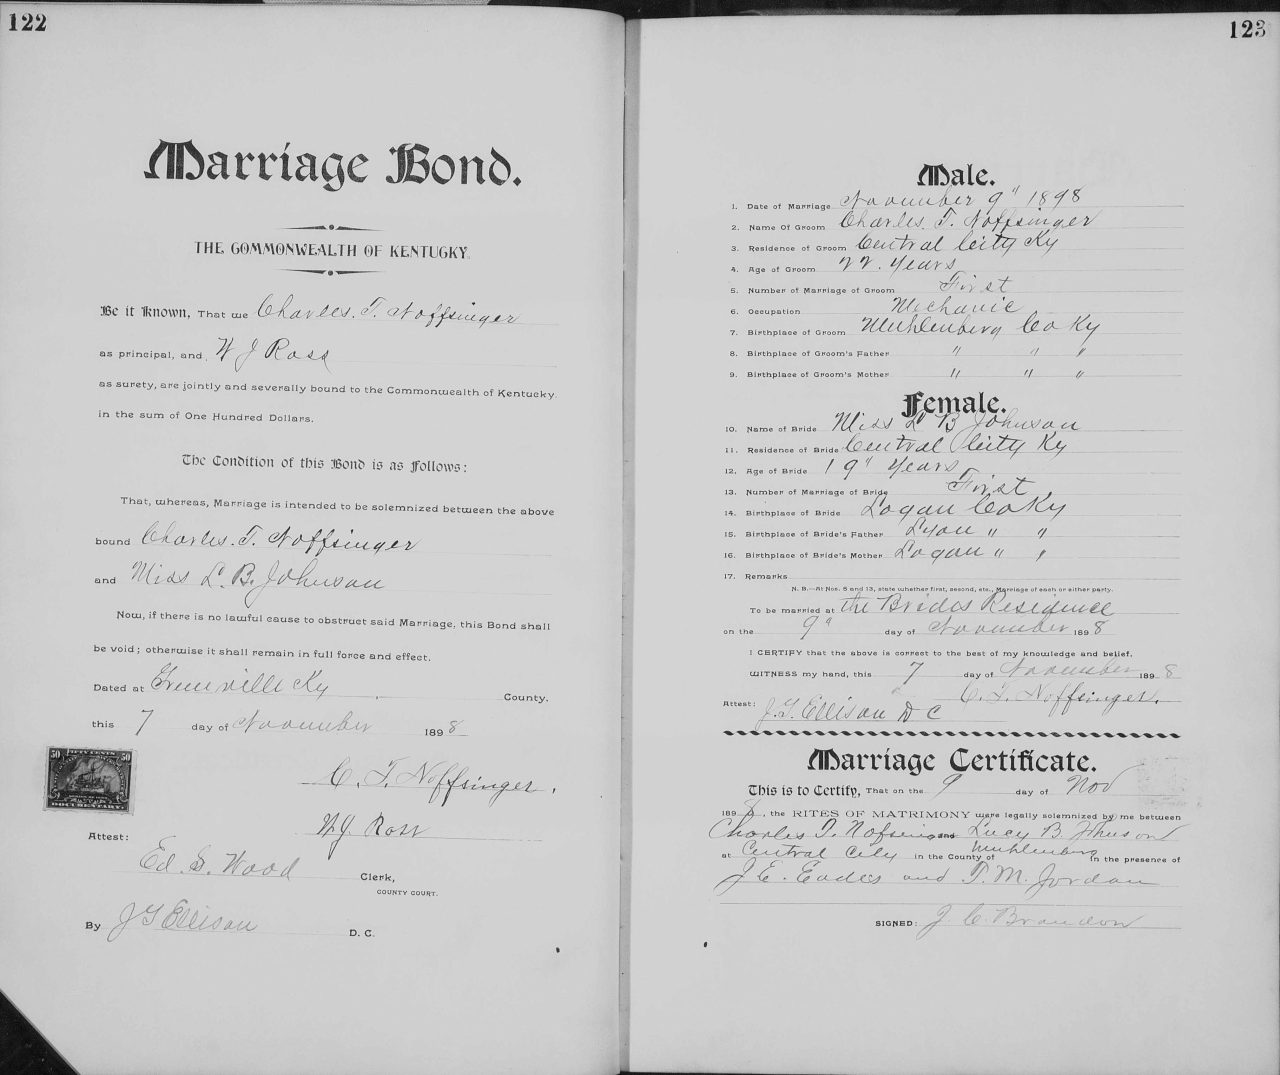 122
Marriage Bond.
THE COMMONWEALTH OF KENTUCKY.
Be it Known, That we Charles. T. Noffsinger
as principal, and, W J Ross
as surety, are jointly and severally bound to the Commonwealth of Kentucky.
in the sum of One Hundred Dollars.
The Condition of this Bond is as Follows:
That, whereas, Marriage is intended to be solemnized between the above
bound Charles. T. Noffsinger
and Miss L. B. Johnson
Now, if there is no lawful cause to obstruct said Marriage, this Bond shall
be void; otherwise it shall remain in full force and effect.
Dated at Greenville Ky County,
this 7 day of November 1898
50 FIFTY CENTS 50
DOCUMENTARY
C. T. Noffsinger.
W. J. Ross
Attest:
Ed. S. Wood Clerk,
COUNTY COURT.
By J G Ellison D. C.
123
Male.
1. Date of Marriage November 9" 1898
2. Name Of Groom Charles. T. Noffsinger
3. Residence of Groom Central City Ky
4. Age of Groom 22. Years
5. Number of Marriage of Groom First
6. Occupation Mechanic
7. Birthplace of Groom Muhlenberg Co Ky
8. Birthplace of Groom's Father " " "
9. Birthplace of Groom's Mother " " "
Female.
10. Name of Bride Miss L B Johnson
11. Residence of Bride Central City Ky
12. Age of Bride 19" Years
13. Number of Marriage of Bride First
14. Birthplace of Bride Logan Co Ky
15. Birthplace of Bride's Father Lyon " "
16. Birthplace of Bride's Mother Logan " "
17. Remarks
N. B.—At Nos. 5 and 13, state whether first, second, etc., Marriage of each or either party.
To be married at the Brides Residence
on the 9" day of November 1898
I CERTIFY that the above is correct to the best of my knowledge and belief.
WITNESS my hand, this 7 day of November 1898
C. T. Noffsinger.
Attest: J. G. Ellison D C
Marriage Certificate.
This is to Certify, That on the 9 day of Nov
1898, the RITES OF MATRIMONY were legally solemnized by me between
Charles T. Nofsinger and Lucy B. Johnson
at Central City in the County of Muhlenburg in the presence of
J. E. Eades and T. M. Jordan
SIGNED: J. C. Brandon